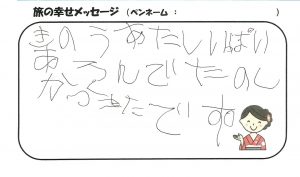 旅の幸せメッセージ (ペンネーム： )
きのうあたしいぱい
あそんでたのし
かつきたです